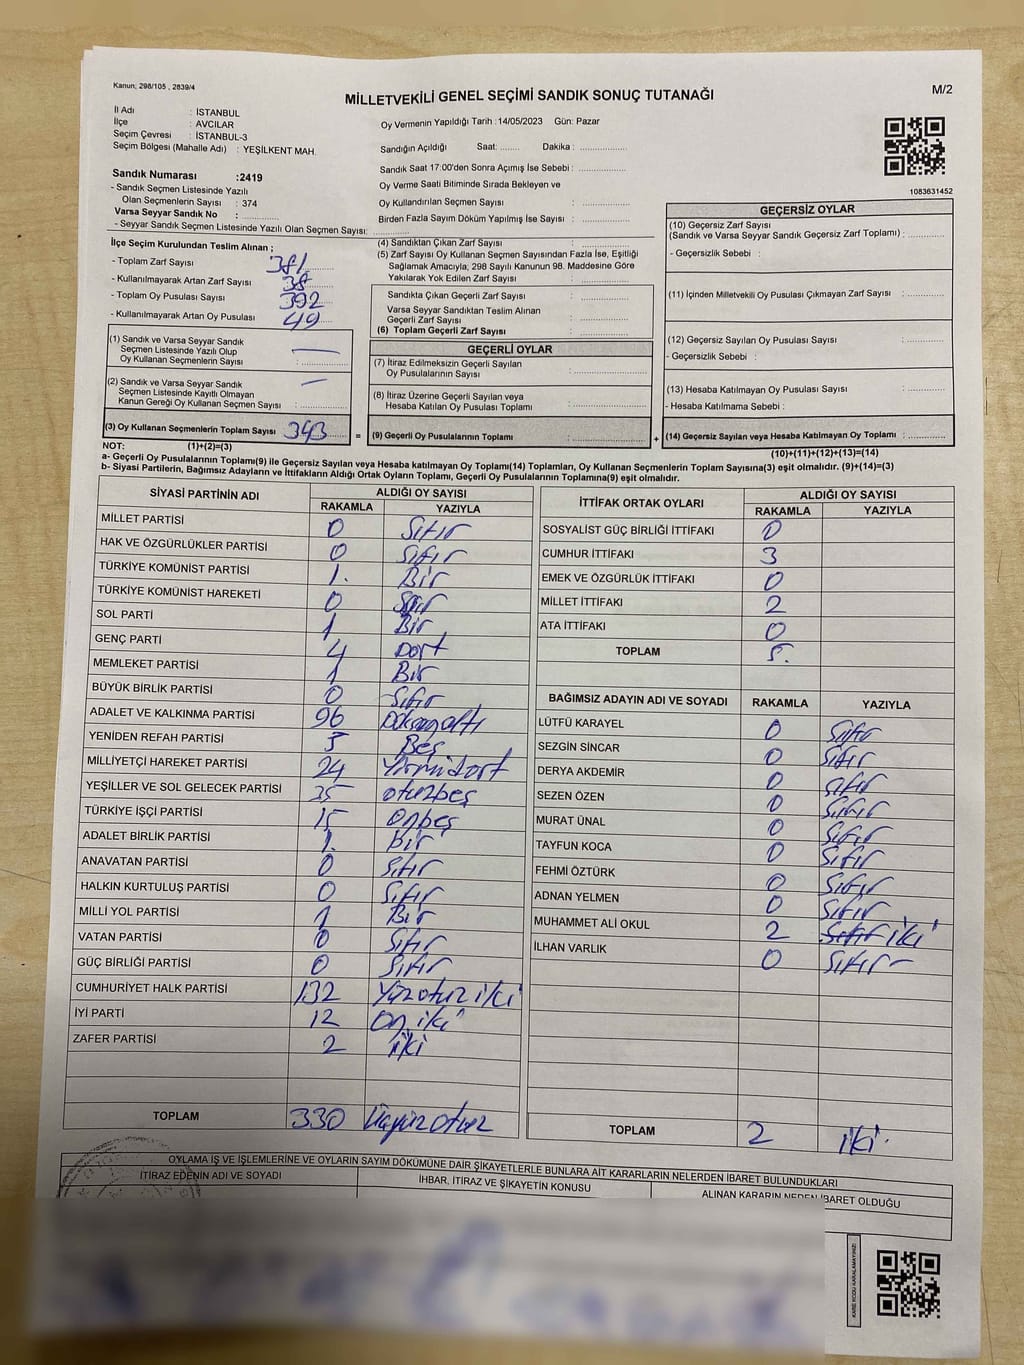 Kanun; 298/105 , 2839/4
MİLLETVEKİLİ GENEL SEÇİMİ SANDIK SONUÇ TUTANAĞI
M/2
İl Adı : İSTANBUL
İlçe : AVCILAR
Seçim Çevresi : İSTANBUL-3
Seçim Bölgesi (Mahalle Adı) : YEŞİLKENT MAH.
Sandık Numarası :2419
- Sandık Seçmen Listesinde Yazılı
Olan Seçmenlerin Sayısı : 374
Varsa Seyyar Sandık No : ..............
- Seyyar Sandık Seçmen Listesinde Yazılı Olan Seçmen Sayısı: ..............
Oy Vermenin Yapıldığı Tarih :14/05/2023 Gün: Pazar
Sandığın Açıldığı Saat: ........ Dakika : ..............
Sandık Saat 17:00'den Sonra Açımış İse Sebebi : ..............
Oy Verme Saati Bitiminde Sırada Bekleyen ve
Oy Kullandırılan Seçmen Sayısı : ..............
Birden Fazla Sayım Döküm Yapılmış İse Sayısı : ..............
1083631452
İlçe Seçim Kurulundan Teslim Alınan ;
- Toplam Zarf Sayısı 381
- Kullanılmayarak Artan Zarf Sayısı : 38
- Toplam Oy Pusulası Sayısı 392
- Kullanılmayarak Artan Oy Pusulası 49
(1) Sandık ve Varsa Seyyar Sandık
Seçmen Listesinde Yazılı Olup
Oy Kullanan Seçmenlerin Sayısı : ..............
(2) Sandık ve Varsa Seyyar Sandık
Seçmen Listesinde Kayıtlı Olmayan
Kanun Gereği Oy Kullanan Seçmen Sayısı : ..............
(3) Oy Kullanan Seçmenlerin Toplam Sayısı 343
(4) Sandıktan Çıkan Zarf Sayısı : ..............
(5) Zarf Sayısı Oy Kullanan Seçmen Sayısından Fazla İse, Eşitliği
Sağlamak Amacıyla, 298 Sayılı Kanunun 98. Maddesine Göre
Yakılarak Yok Edilen Zarf Sayısı : ..............
Sandıkta Çıkan Geçerli Zarf Sayısı : ..............
Varsa Seyyar Sandıktan Teslim Alınan
Geçerli Zarf Sayısı : ..............
(6) Toplam Geçerli Zarf Sayısı : ..............
GEÇERLİ OYLAR
(7) İtiraz Edilmeksizin Geçerli Sayılan
Oy Pusulalarının Sayısı : ..............
(8) İtiraz Üzerine Geçerli Sayılan veya
Hesaba Katılan Oy Pusulası Toplamı : ..............
= (9) Geçerli Oy Pusulalarının Toplamı : ..............
GEÇERSİZ OYLAR
(10) Geçersiz Zarf Sayısı
(Sandık ve Varsa Seyyar Sandık Geçersiz Zarf Toplamı) : ..............
- Geçersizlik Sebebi :
(11) İçinden Milletvekili Oy Pusulası Çıkmayan Zarf Sayısı : ..............
(12) Geçersiz Sayılan Oy Pusulası Sayısı : ..............
- Geçersizlik Sebebi :
(13) Hesaba Katılmayan Oy Pusulası Sayısı : ..............
- Hesaba Katılmama Sebebi :
+ (14) Geçersiz Sayılan veya Hesaba Katılmayan Oy Toplamı : ..............
NOT: (1)+(2)=(3) (10)+(11)+(12)+(13)=(14)
a- Geçerli Oy Pusulalarının Toplamı(9) ile Geçersiz Sayılan veya Hesaba katılmayan Oy Toplamı(14) Toplamları, Oy Kullanan Seçmenlerin Toplam Sayısına(3) eşit olmalıdır. (9)+(14)=(3)
b- Siyasi Partilerin, Bağımsız Adayların ve İttifakların Aldığı Ortak Oyların Toplamı, Geçerli Oy Pusulalarının Toplamına(9) eşit olmalıdır.
SİYASİ PARTİNİN ADI ALDIĞI OY SAYISI
RAKAMLA YAZIYLA
MİLLET PARTİSİ 0 Sıfır
HAK VE ÖZGÜRLÜKLER PARTİSİ 0 Sıfır
TÜRKİYE KOMÜNİST PARTİSİ 1. Bir
TÜRKİYE KOMÜNİST HAREKETİ 0 Sıfır
SOL PARTİ 1 Bir
GENÇ PARTİ 4 Dört
MEMLEKET PARTİSİ 1 Bir
BÜYÜK BİRLİK PARTİSİ 0 Sıfır
ADALET VE KALKINMA PARTİSİ 96 Doksanaltı
YENİDEN REFAH PARTİSİ 5 Beş
MİLLİYETÇİ HAREKET PARTİSİ 24 Yirmidört
YEŞİLLER VE SOL GELECEK PARTİSİ 35 otuzbeş
TÜRKİYE İŞÇİ PARTİSİ 15 Onbeş
ADALET BİRLİK PARTİSİ 1. Bir
ANAVATAN PARTİSİ 0 Sıfır
HALKIN KURTULUŞ PARTİSİ 0 Sıfır
MİLLİ YOL PARTİSİ 1 Bir
VATAN PARTİSİ 0 Sıfır
GÜÇ BİRLİĞİ PARTİSİ 0 Sıfır
CUMHURİYET HALK PARTİSİ 132 Yüzotuziki
İYİ PARTİ 12 Oniki
ZAFER PARTİSİ 2 iki
TOPLAM 330 Üçyüzotuz
İTTİFAK ORTAK OYLARI ALDIĞI OY SAYISI
RAKAMLA YAZIYLA
SOSYALİST GÜÇ BİRLİĞİ İTTİFAKI 0
CUMHUR İTTİFAKI 3
EMEK VE ÖZGÜRLÜK İTTİFAKI 0
MİLLET İTTİFAKI 2
ATA İTTİFAKI 0
TOPLAM 5.
BAĞIMSIZ ADAYIN ADI VE SOYADI RAKAMLA YAZIYLA
LÜTFÜ KARAYEL 0 Sıfır
SEZGİN SİNCAR 0 Sıfır
DERYA AKDEMİR 0 Sıfır
SEZEN ÖZEN 0 Sıfır
MURAT ÜNAL 0 Sıfır
TAYFUN KOCA 0 Sıfır
FEHMİ ÖZTÜRK 0 Sıfır
ADNAN YELMEN 0 Sıfır
MUHAMMET ALİ OKUL 2 Sıfır iki
İLHAN VARLIK 0 Sıfır
TOPLAM 2 iki.
OYLAMA İŞ VE İŞLEMLERİNE VE OYLARIN SAYIM DÖKÜMÜNE DAİR ŞİKAYETLERLE BUNLARA AİT KARARLARIN NELERDEN İBARET BULUNDUKLARI
İTİRAZ EDENİN ADI VE SOYADI İHBAR, İTİRAZ VE ŞİKAYETİN KONUSU ALINAN KARARIN NEDEN İBARET OLDUĞU
KARE KODU KARALAMAYINIZ!